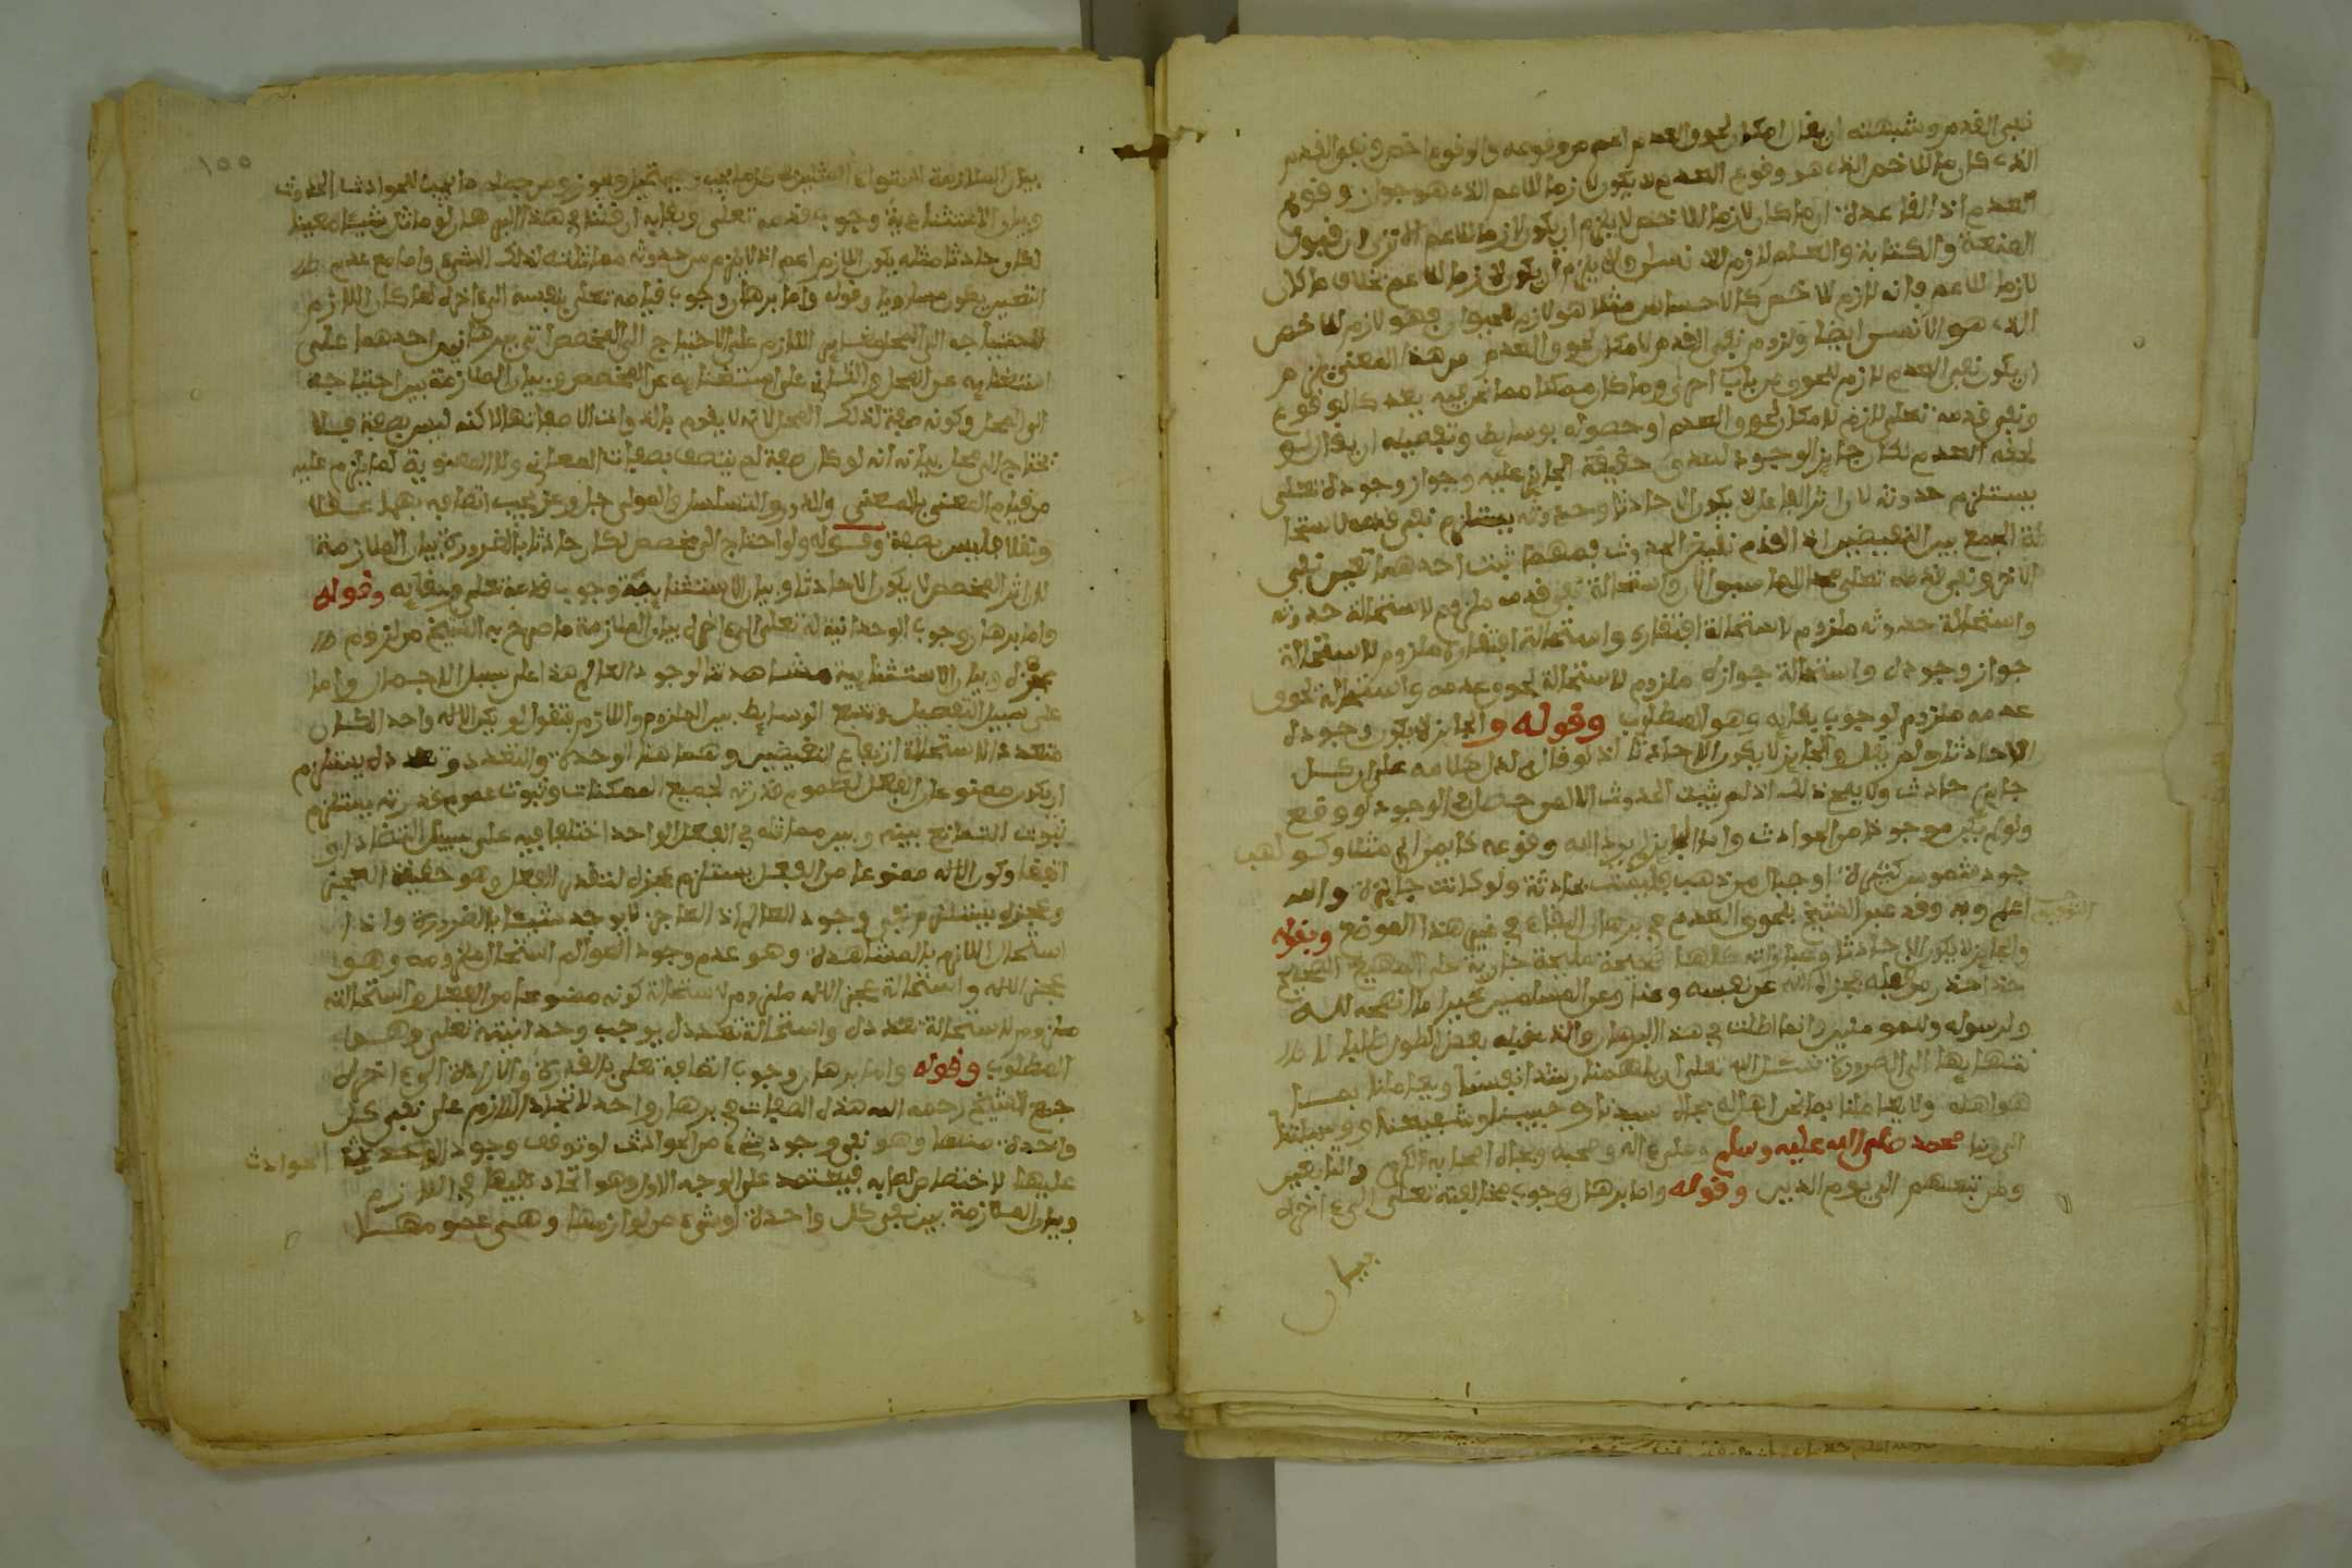 نفي القدم وشبهته ان يقال امكان لحوق العدم اعم من وقوعه والوقوع اخص ونفي القدم
الذي كان مالا خص الذي هو وقوع العدم لا يكون لازما للاعم الذي هو جواز وقوع
العدم اذ القاعدة ان ما كان لازما للاخص لا يلزم ان يكون لازما للاعم الا ترى ان قبول
الصنعة والكتابة والعلم لازم للانسان ولا يلزم ان يكون لازما للاعم بخلاف ما كان
لازما للاعم فانه لازم للاخص كالاحساس مثلا هو لازم للحيوان فهو لازم للاخص
الذي هو الانسان ايضا ولزوم نفي القدم لامكان لحوق العدم من هذا المعنى يلزم
ان يكون نفي القدم لازم للحوق من باب احرى وما كان ممكنا مما نحن فيه يعد كالوقوع
ونفي قدمه تعلى لازم لامكان لحوق العدم او حصوله بوسايط وتفصيله ان يقال لو
لحقه العدم لكان جايز الوجود لصدق حقيقة الجايز عليه وجواز وجوده تعلى
يستلزم حدوثه لان اثر الفاعل لا يكون الا حادثا وحدوثه يستلزم نفي قدمه لاستحا
لة الجمع بين النقيضين اذ القدم نقيض الحدوث فمهما ثبت احدهما تعين نفي
الاخر ونفي قدمه تعلى واستحالة نفي قدمه ملزوم لاستحالة حدوثه
واستحالة حدوثه ملزوم لاستحالة افتقاره واستحالة افتقاره ملزوم لاستحالة
جواز وجوده واستحالة جوازه ملزوم لاستحالة لحوق عدمه واستحالة لحوق
عدمه ملزوم لوجوب بقايه وهو المطلوب وقوله والجايز لا يكون وجوده
الا حادثا ولم يقل والجايز لا يكون الا حادثا اذ لو قال لدل كلامه على ان كل
جايز حادث ولا يصح ذلك اذ لم يثبت الحدوث الا لمن حصل في الوجود لو وقع
ولو لم يكن موجودا من الحوادث واما الجايز لم يرد الله وقوعه كايمان ابي مثلا وكو لهب
جود شموس كثيرة او جبال من ذهب فليست بحادثة ولو كانت جايزة والله
اعلم وبه وقد عبر الشيخ بلحوق العدم في برهان البقاء في غير هذا الموضع وبقوله
والجايز لا يكون الا حادثا وعباراته كلها صحيحة مليحة جارية على المهيع الصحيح
جزاه الله عن نفسه وعنا وعن المسلمين خيرا ما انصحه لله
ولرسوله وللمومنين وانما اطلت في هذا البرهان والذي قبله بعض الطول
بها الى الضرورة نسئل الله تعلى ان يلهمنا رشد انفسنا ويعاملنا بما
هو اهله ولا يعاملنا بما نحن اهله بجاه سيدنا وحبيبنا وشفيعنا ووسيلتنا
الى ربنا محمد صلى الله عليه وسلم وعلى اله وصحبه وبجاه اصحابه الكرام والتابعين
ومن تبعهم الى يوم الدين وقوله واما برهان وجوب مخالفته تعلى الى اخره
بيان
١٥٥
بيان الملازمة استواء المثلين في كل ما يجب ويستحيل ويجوز ومن جملة ما يجب للحوادث الحدوث
وبيان الاستثنائية وجوب قدمه تعلى وبقايه ان قلنا في هذا البرهان لو ماثل شيئا معينا
لكان حادثا مثله يكون اللازم اعم اذ لا يلزم من حدوثه مماثلته لذلك الشيء واما مع عدم
التعيين يكون مساويا وقوله واما برهان وجوب قيامه تعلى بنفسه الى اخره لما كان اللازم
لاحتياجه الى المحل مغاير اللازم على الاحتياج الى المخصص اتى ببرهانين احدهما على
استغنايه عن المحل والثاني على استغنايه عن المخصص وبيان الملازمة بين احتياجه
الى المحل وكونه صفة لذلك المحل لانه لا يقوم بالذوات الا صفاتها لاكنه ليس بصفة فلا
يحتاج الى محل بيانه انه لو كان صفة لم يتصف بصفات المعاني ولا المعنوية لما يلزم عليه
من قيام المعنى بالمعنى والدور والتسلسل والمولى جل وعز يجب اتصافه بهما عقلا
ونقلا فليس بصفة وقوله ولو احتاج الى مخصص لكان حادثا بالضرورة بيان الملازمة
لان اثر المخصص لا يكون الا حادثا وبيان الاستثنائية وجوب قدمه تعلى وبقايه وقوله
واما برهان وجوب الوحدانية له تعلى الى اخره بيان الملازمة ما صرح به الشيخ من لزوم
عجزه وبيان الاستثنائية مشاهدتنا لوجود العالم هذا على سبيل الاجمال واما
على سبيل التفصيل وتتبع الوسايط بين الملزوم واللازم فنقول لو لم يكن الاله واحدا لكان
متعددا لاستحالة ارتفاع النقيضين وهما هنا الوحدة والتعدد وتعدده يستلزم
ان يكون ممنوعا من الفعل لعموم قدرته لجميع الممكنات وثبوت عموم قدرته يستلزم
ثبوت التمانع بينه وبين مماثله في الفعل الواحد اختلفا فيه على سبيل التضاد او
اتفقا وكون الاله ممنوعا من الفعل يستلزم عجزه لتعذر الفعل وهو حقيقة العجز
وعجزه يستلزم نفي وجود العالم اذ العاجز لا يوجد شيئا بالضرورة واذا
استحال اللازم بالمشاهدة وهو عدم وجود العوالم استحال ملزومه وهو
عجز الاله واستحالة عجز الاله ملزوم لاستحالة كونه ممنوعا من الفعل واستحالته
ملزوم لاستحالة تعدده واستحالة تعدده يوجب وحدانيته تعلى وهو
المطلوب وقوله واما برهان وجوب اتصافه تعلى بالقدرة والارادة الى اخره
جمع الشيخ رحمه الله هذه الصفات في برهان واحد لاتحاد اللازم على نفي كل
واحدة منها وهو نفي وجود شيء من الحوادث لو توقف وجود الحوادث
عليها لاختصاص فيعتمد على الوجه الاول وهو اتحاد في اللازم
وبيان الملازمة بين نفي كل واحدة او شيء من لوازمها وهي عمومها